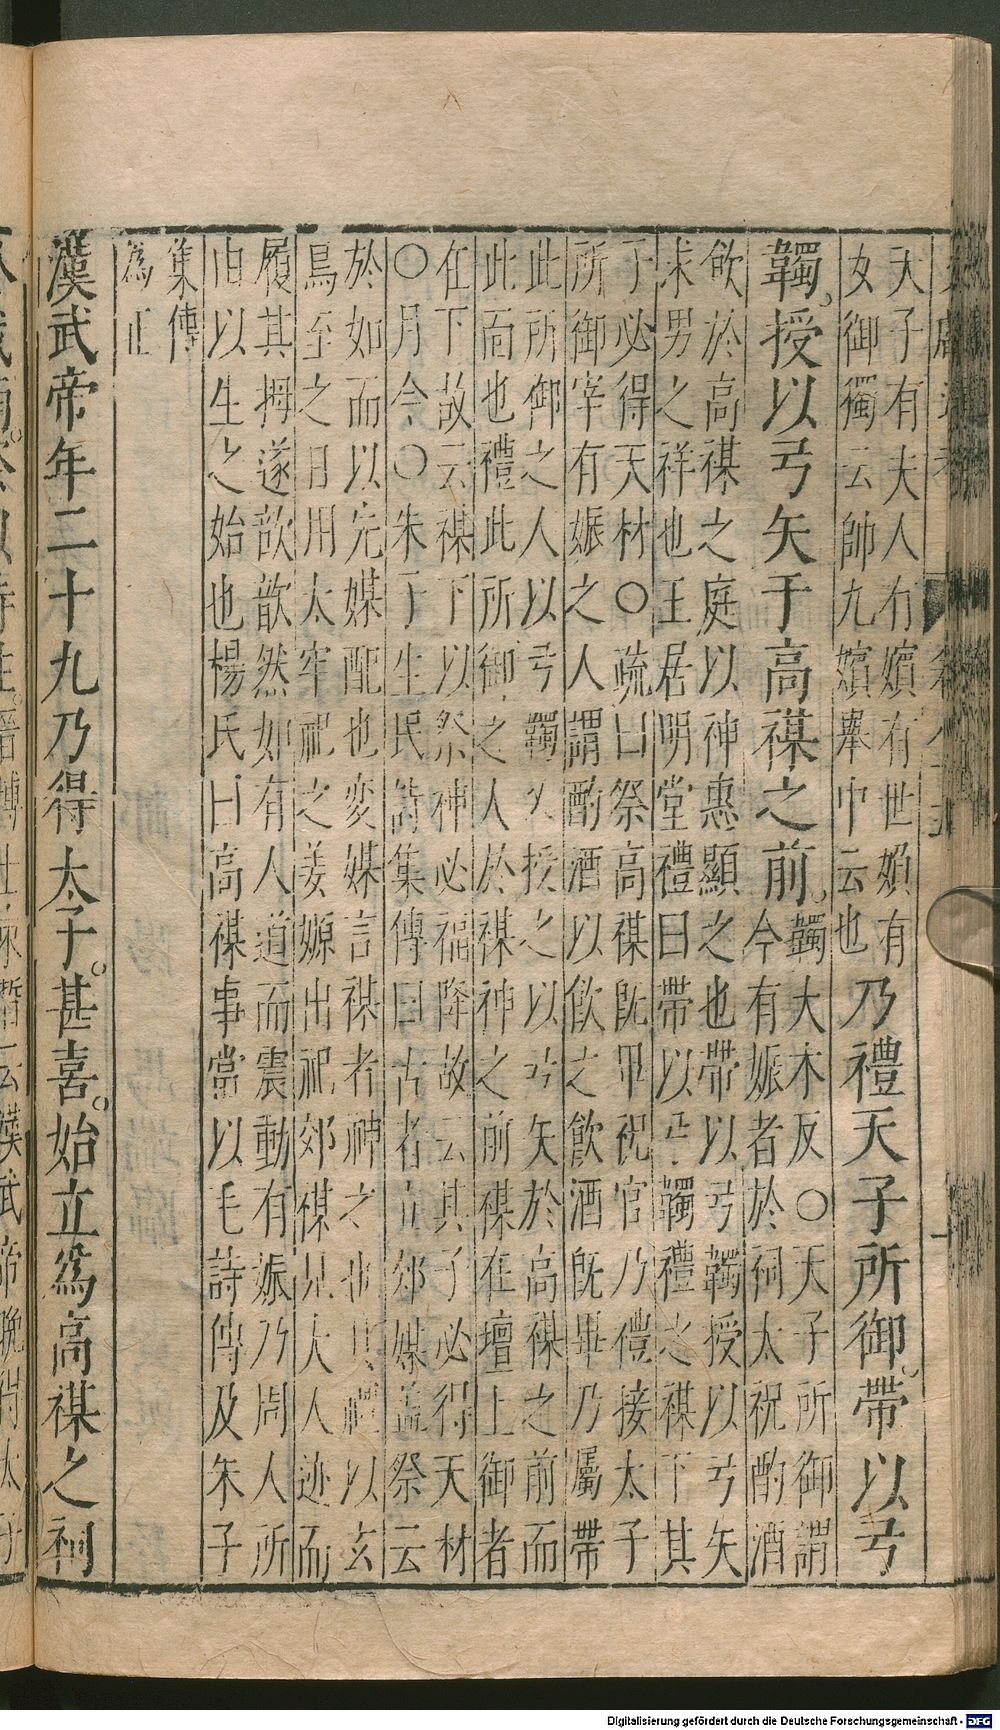 天子有夫人有嬪有世婦有
女御獨云帥九嬪舉中云也
乃禮天子所御帶以弓
韣授以弓矢于高禖之前
韣大木反○天子所御謂
今有娠者於祠太祝酌酒
飲於高禖之庭以神惠顯之也帶以弓韣授以弓矢
求男之祥也王居明堂禮曰帶以弓韣禮之禖下其
子必得天材○疏曰祭高禖既畢祝官乃禮接太子
所御宰有娠之人謂酌酒以飲之飲酒既畢乃屬帶
此所御之人以弓韣又授之以弓矢於高禖之前而
此面也禮此所御之人於禖神之前禖在壇上御者
在下故云禖下以祭神必福降故云其子必得天材
○月令○朱子生民詩集傳曰古者立郊媒蓋祭云
於如而以先媒配也変媒言禖者神之也其禮以玄
鳥至之日用太牢祀之姜嫄出祀郊禖見大人迹而
履其拇遂歆歆然如有人道而震動有娠乃周人所
由以生之始也楊氏曰高禖事當以毛詩傳及朱子
集傳
為正
漢武帝年二十九乃得太子。甚喜。始立爲高禖之祠
Digitalisierung gefördert durch die Deutsche Forschungsgemeinschaft - DFG